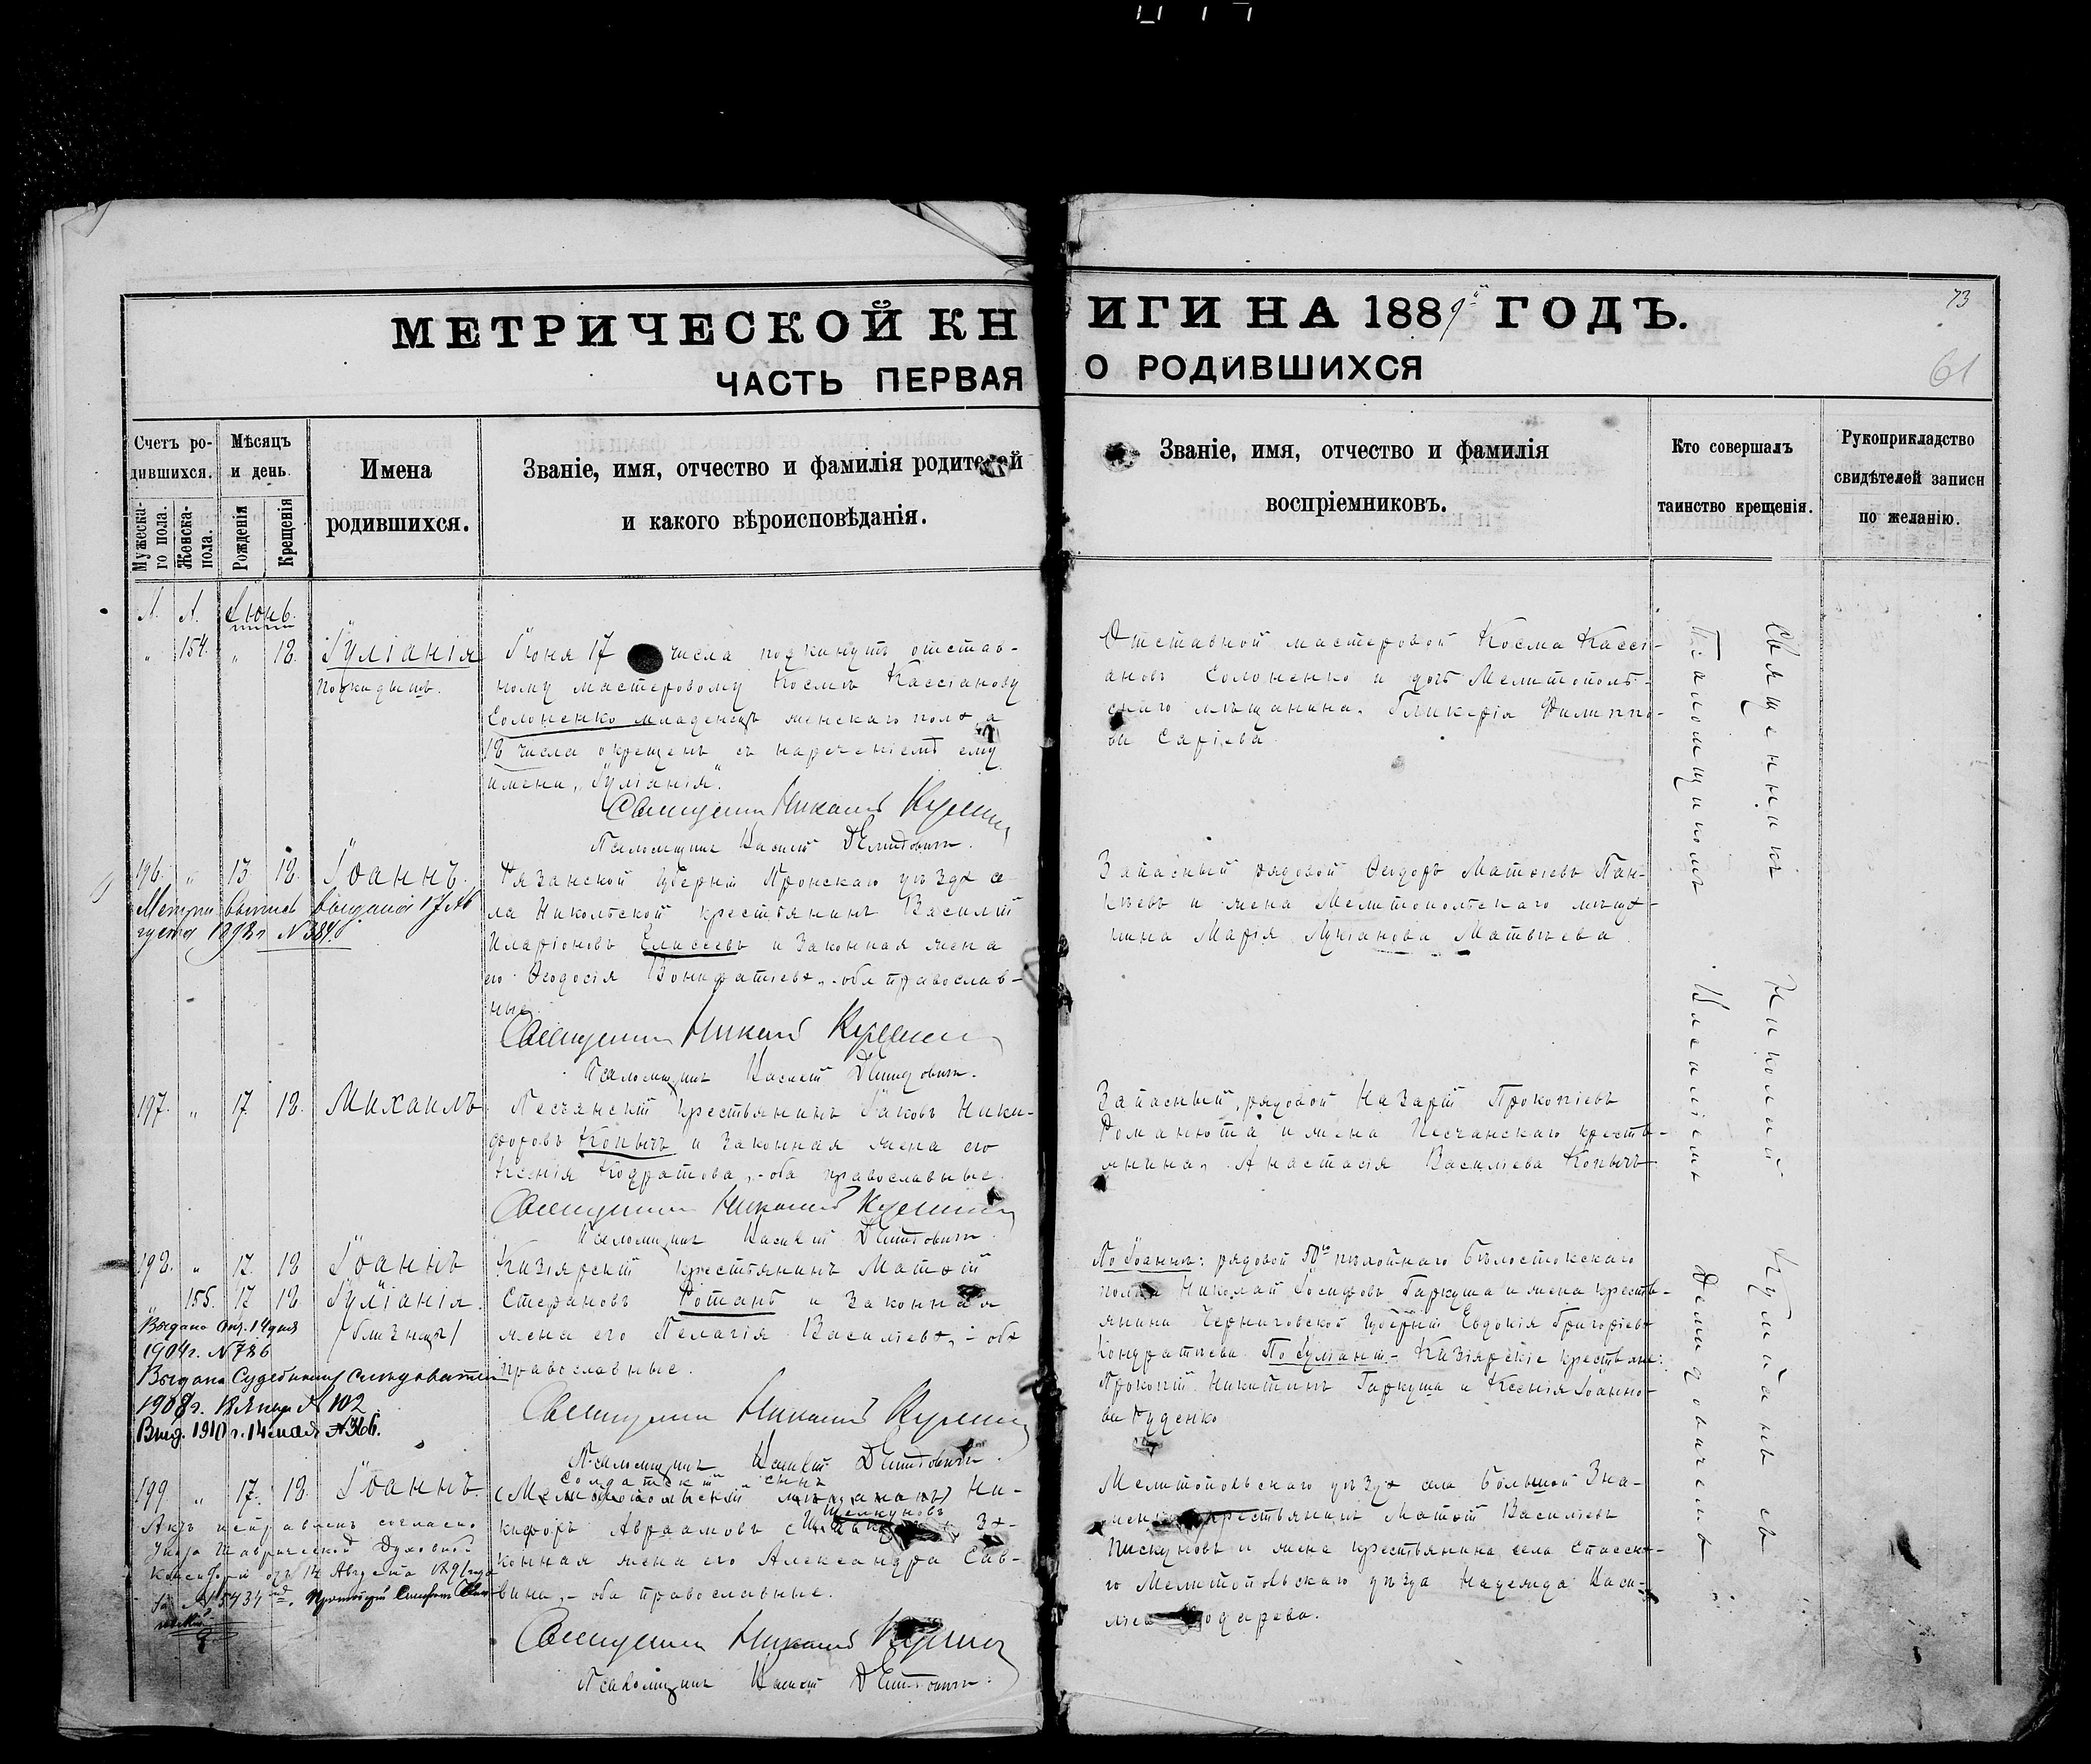 МЕТРИЧЕСКОЙ КНИГИ НА 1889й ГОДЪ.
73
ЧАСТЬ ПЕРВАЯ О РОДИВШИХСЯ
61
Счетъ родившихся.
Мужескаго пола.
Женска- пола.
Мѣсяцъ и день.
Рожденія
Крещенія
Имена
родившихся.
Званіе, имя, отчество и фамилія родителей
и какого вѣроисповѣданія.
Званіе, имя, отчество и фамилія
воспріемниковъ.
Кто совершалъ
таинство крещенія.
Рукоприкладство
свидѣтелей записи
по желанію.
Іюнь.
154. 18. Іуліанія
подкидышъ.
Іюня 17 числа подкинутъ отстав-
ному мастеровому Космѣ Кассіанову
Солоненко младенецъ женскаго пола, а
18 числа окрещенъ съ нареченіемъ ему
имени „Іуліанія“.
Священникъ Николай
Псаломщикъ Василій Демидовичъ.
Отставной мастеровой Косма Кассі-
ановъ Солоненко и дочь Мелитополь-
скаго мѣщанина Гликерія Филиппо-
ва Саріева
196. " 13 18. Іоаннъ.
Рязанской губерніи Пронскаго уѣзда се-
ла Никольской крестьянинъ Василій
Иларіоновъ Елисеевъ и законная жена
его Ѳеодосія Вонифатіева, - оба православ-
ные.
Священникъ Николай
Псаломщикъ Василій Демидовичъ.
Запасный рядовой Ѳеодоръ Матѳіевъ Пан-
и жена Мелитопольскаго мѣща-
нина Марія Лукіанова Матвѣева
197. " 17 18. Михаилъ
Песчанскій крестьянинъ Іаковъ Ники-
форовъ Копычъ и законная жена его
Ксенія Кодратова, - оба православные.
Священникъ Николай
Псаломщикъ Василій Демидовичъ.
Запасный рядовой Назарій Прокопіевъ
Романюта и жена Песчанскаго кресть-
янина, Анастасія Василіева Копычъ
198. " 17 18 Іоаннъ
155. 17 18 Іуліанія.
/близнецы/
1904г. №786
Выдана Судебному Слѣдователю
1908г. № 102
Выд. 1910г. 14 мая №366.
Кизіярскій крестьянинъ Матѳій
Стефановъ Ротань и законная
жена его Пелагія Василіева, - оба
православные.
Священникъ Николай
Псаломщикъ Василій Демидовичъ.
По Іоаннѣ: рядовой 50го пѣхотнаго Бѣлостокскаго
полка Николай Іосифовъ Гаркуша и жена кресть-
янина Черниговской губерніи Евдокія Григоріева
Кондратіева. По Іуліаніи - Кизіярскіе крестьяне:
Прокопій Никитинъ Гаркуша и Ксенія Іоанно-
ва Руденко
199 " 17. 18. Іоаннъ.
Актъ исправленъ согласно
Указа Таврической Духовной
Консисторіи отъ 14 Августа 1891 года
за № 5434
солдатскій сынъ
(Мелитопольскій мѣщанинъ) Ни-
кифоръ Авраамовъ За-
конная жена его Александра Сав-
вина, - оба православные.
Священникъ Николай
Псаломщикъ Василій Демидовичъ.
Мелитопольскаго уѣзда села Большой Зна-
менки крестьянинъ Матѳій Василіевъ
Пискуновъ и жена крестьянина села Спасска-
го Мелитопольскаго уѣзда Надежда Васи-
ліева
Священникъ Николай
Псаломщикомъ Василіемъ Демидовичемъ.